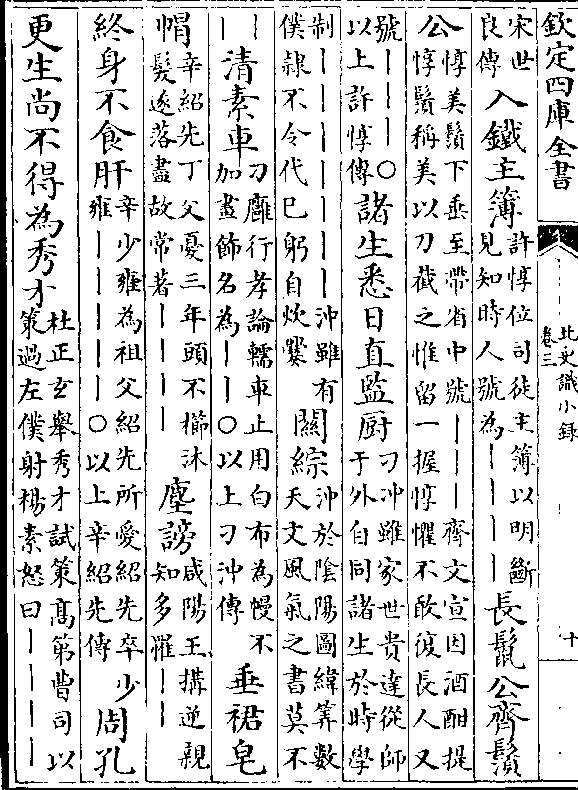 欽定四庫全書
北史識小錄
卷三
十
宋世良傳 入鐵主簿 許惇位司徒主簿以明斷見知時人號為｜｜｜｜ 長鬛公齊鬚
公 惇美鬚下垂至帶省中號｜｜｜齊文宣因酒酣提惇鬚稱美以刀截之惟留一握惇懼不敢復長人又
號｜｜｜○以上許惇傳 諸生悉日直監厨 刁冲雖家世貴達從師于外自同諸生於時學
制｜｜｜｜｜｜｜沖雖有僕隸不令代已躬自炊爨 關綜 沖於陰陽圖緯筭數天文風氣之書莫不
｜｜ 清素車 刁雍行孝論轜車止用白布為幔不加畫飾名為｜｜｜○以上刁沖傳 垂裙皂
帽 辛紹先丁父憂三年頭不櫛沐髮遂落盡故常著｜｜｜｜ 塵謗 咸陽王搆逆親知多罹｜｜
終身不食肝 辛少雍為祖父紹先所愛紹先卒雍｜｜｜｜｜○以上辛紹先傳 少周孔
更生尚不得為秀才 杜正玄舉秀才試策高第曹司以策過左僕射楊素怒曰｜｜｜｜